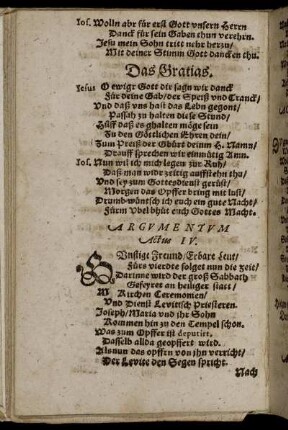 Jos. Wolln abr für erst Gott vnsern Herrn
Danck für sein Gaben thun verehrn.
Jesu mein Sohn tritt nehr herzu/
Mit deiner Stimm Gott dancken thu.
Das Gratias.
Jesus O ewigr Gott dir sagn wir danck
Für deine Gab/der Speiß vnd Tranck/
Vnd daß vns hast das Lebn gegont/
Passah zu halten diese Stund/
Hilff daß es ghalten möge sein
Zu den Göttlichen Ehren dein/
Zum Preiß der Ghürt deinm H. Namn/
Drauff sprechen wir einmütig Amn.
Jos. Nun wil ich mich legen zur Ruh/
Daß man widr zeitig auffstehn thu/
Vnd sey zum Gottesdienst gerüst/
Morgen das Opffer bring mit lust/
Drumb wünsch ich euch ein gute Nacht/
Fürm Vbel bhüt euch Gottes Macht.
ARGVMENTVM
Actus IV.
GVnstige Freund/Erbare Leut/
Fürs vierdte folget nun die zeit/
Darinne wird der groß Sabbath
Gefeyret an heiliger statt/
M Kirchen Ceremonien/
Vnd Dienst Levitsch Priesteren.
Joseph/Maria vnd ihr Sohn
Kommen hin zu den Tempel schon.
Was zum Opffer ist deputirt,
Dasselb allda geopffert wird.
Als nun das opffrn von ihn verricht/
Der Levite den Segen spricht.
Nach